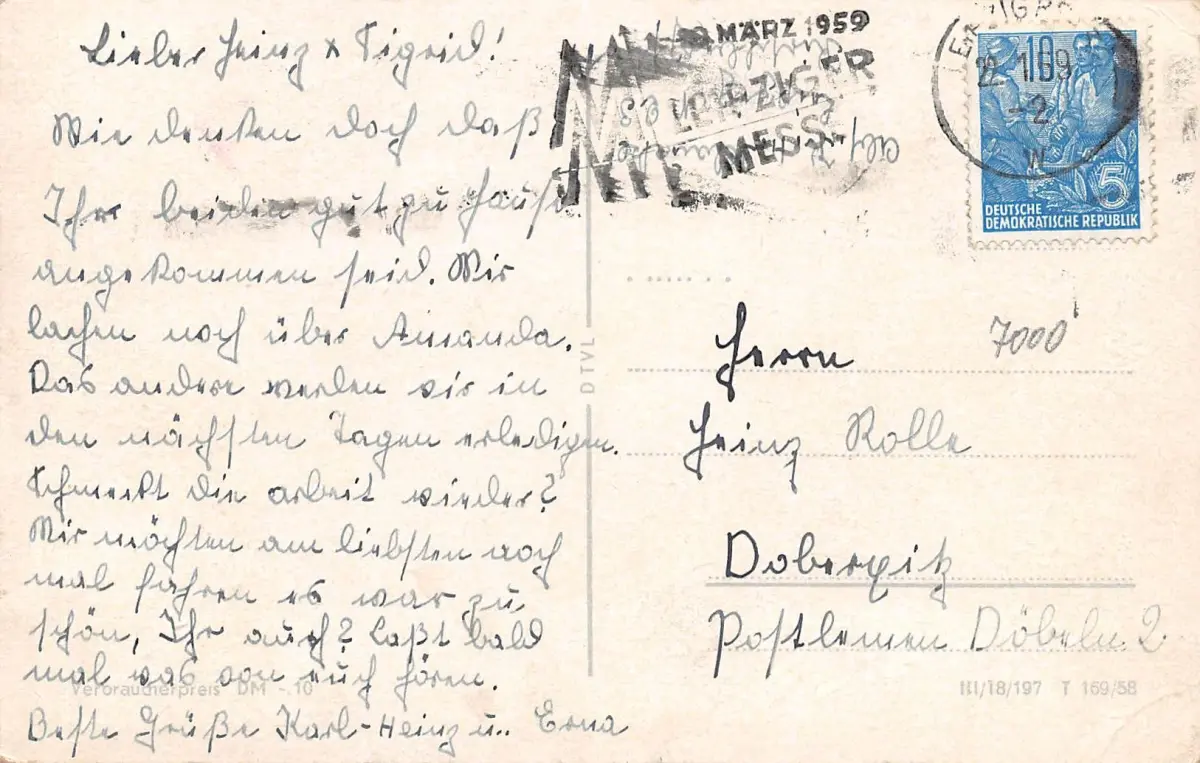 Lieber Heinz + Sigrid!
Wie denken doch daß
Ihr beiden gut zu Hause
angekommen seid. Wir
lachen noch über Amanda.
Das andere werden wir in
den nächsten Tagen erledigen.
Schmeckt die arbeit wieder?
Wir möchten am liebsten noch
mal fahren es war zu
schön, Ihr auch? Laßt bald
mal was von euch hören.
Beste Grüße Karl-Heinz u. Erna
Verbraucherpreis DM -.10
DTVL
MÄRZ 1959
LEIPZIGER
MESSE
22. 1. 59
-2
W
10
5
DEUTSCHE
DEMOKRATISCHE REPUBLIK
7000
Herrn
Heinz Rolle
Doberquitz
Post Döbeln 2
III/18/197 T 169/58